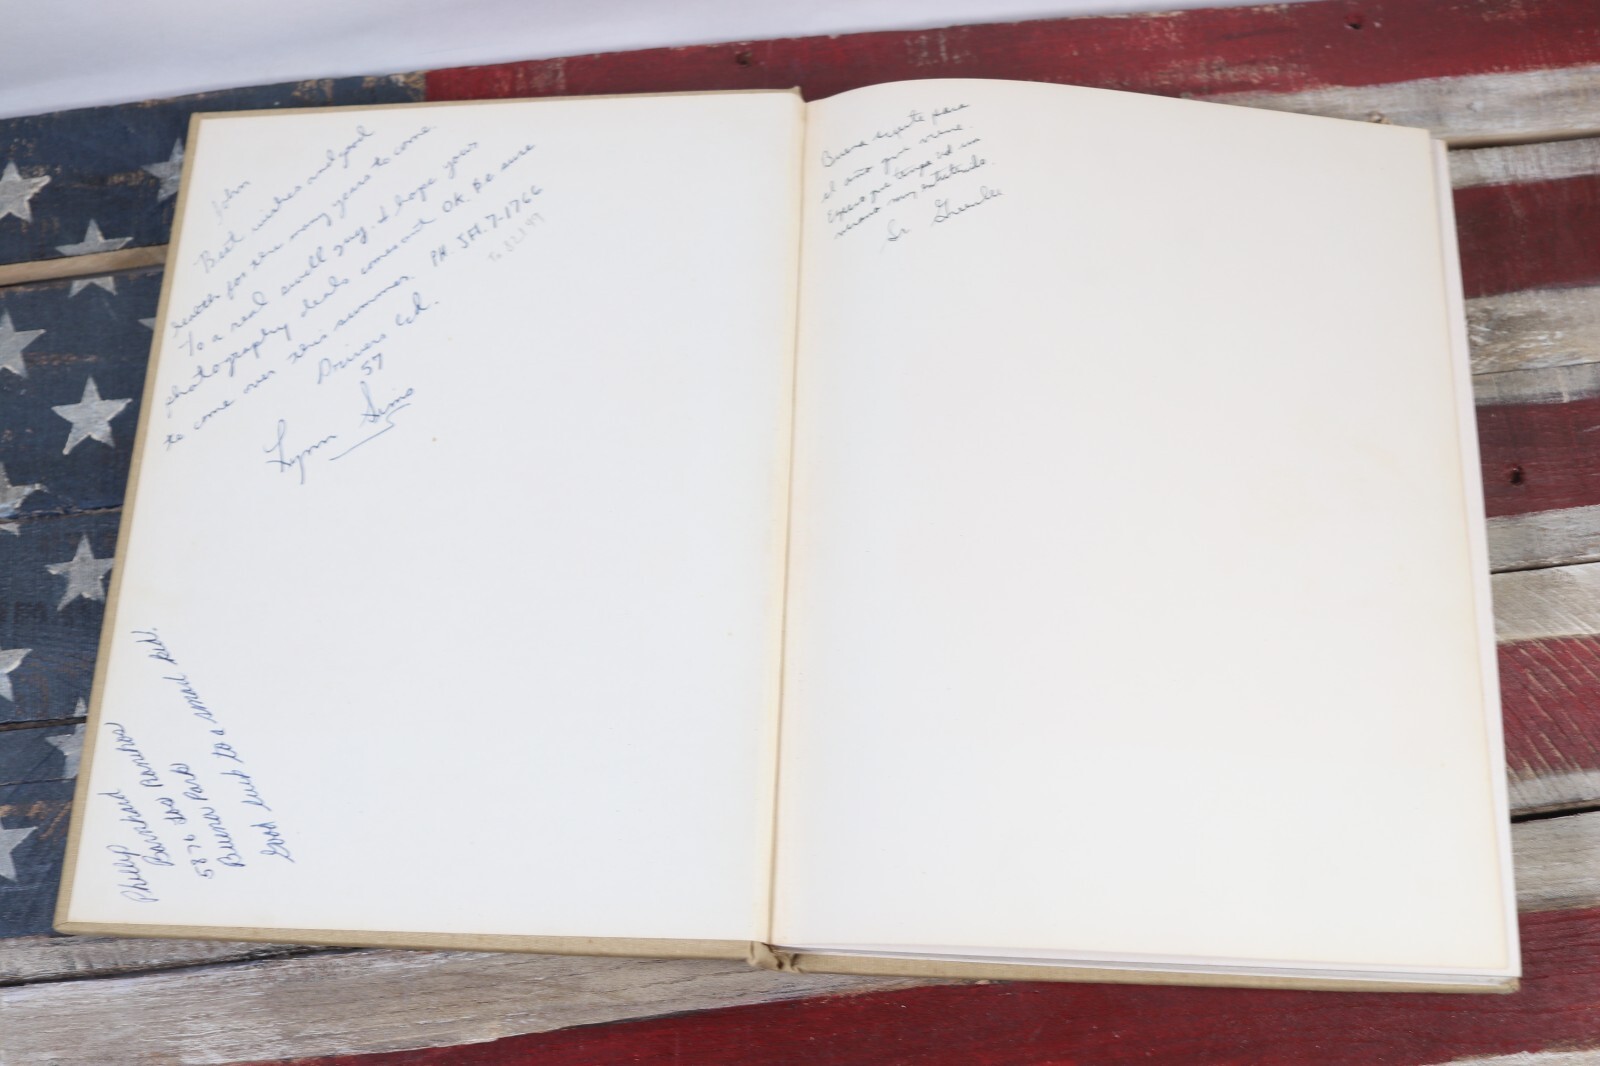 John
Best wishes and good
health for the many years to come.
To a real swell guy. I hope your
photography deals comes out OK. Be sure
to come over this summer. PH. JA.7-1766
To 82197
Drivers Ed.
57
Lynn Sims
Phillip
Barnhard
5876 Los Ranchos
Buena Park
Good luck to a smad kid.
Buena suerte para
el año que viene.
Espero que tenga Ud un
verano muy
Sr